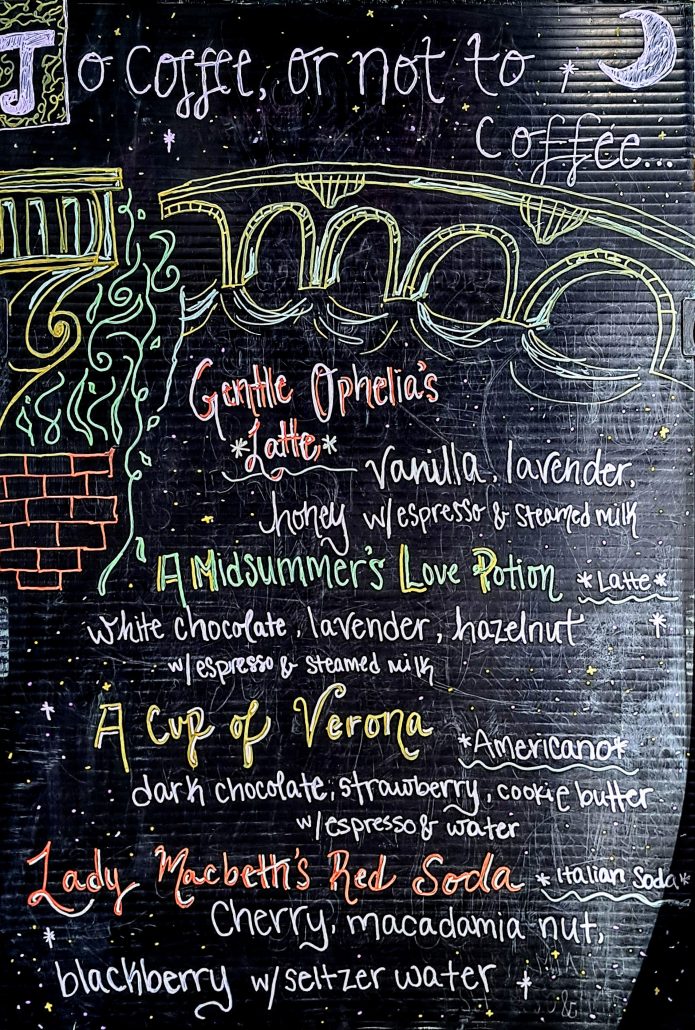 To coffee, or not to
coffee...
Gentle Ophelia's
*Latte,*
vanilla, lavender,
honey w/espresso & steamed milk
A Midsummer's Love Potion *Latte*
white chocolate, lavender, hazelnut
w/espresso & steamed milk
A Cup of Verona *Americano*
dark chocolate, strawberry, cookie butter
w/espresso & water
Lady Macbeth's Red Soda *Italian Soda*
Cherry, macadamia nut,
blackberry w/seltzer water